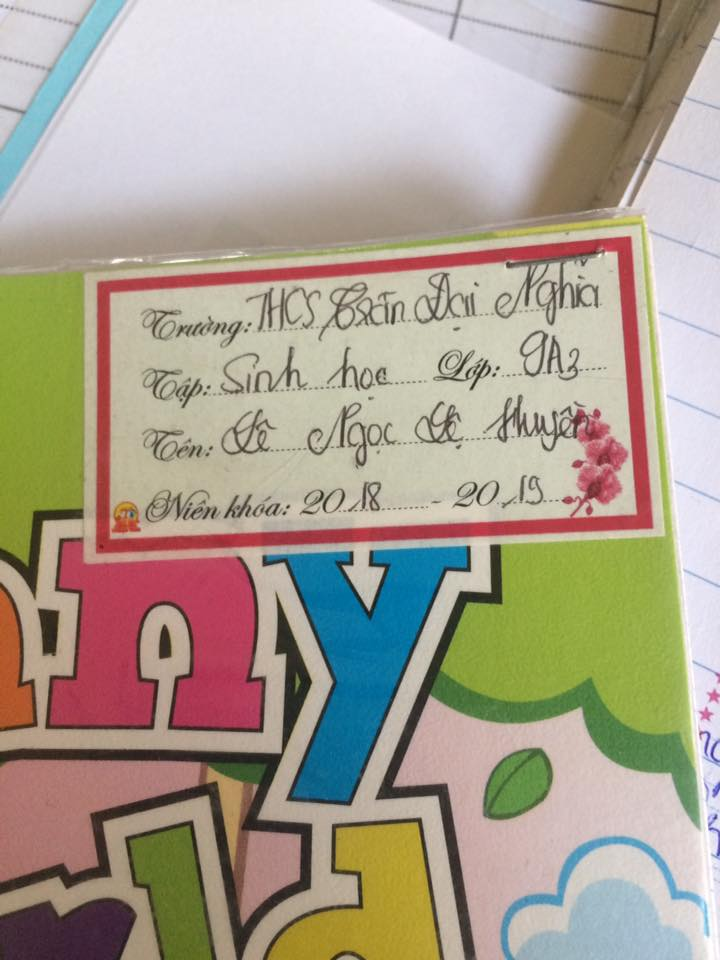 Trường: THCS Trần Đại Nghĩa
Tập: Sinh học Lớp: 9A3
Tên: Lê Ngọc Lệ Huyền
Niên khóa: 2018 - 2019
ny
ld